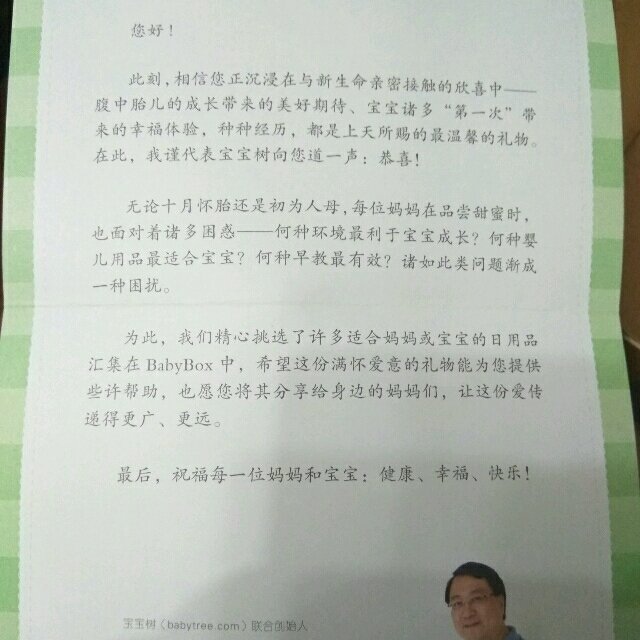 您好！
此刻，相信您正沉浸在与新生命亲密接触的欣喜中——
腹中胎儿的成长带来的美好期待、宝宝诸多“第一次”带
来的幸福体验，种种经历，都是上天所赐的最温馨的礼物。
在此，我谨代表宝宝树向您道一声：恭喜！
无论十月怀胎还是初为人母，每位妈妈在品尝甜蜜时，
也面对着诸多困惑——何种环境最利于宝宝成长？何种婴
儿用品最适合宝宝？何种早教最有效？诸如此类问题渐成
一种困扰。
为此，我们精心挑选了许多适合妈妈或宝宝的日用品
汇集在 BabyBox 中，希望这份满怀爱意的礼物能为您提供
些许帮助，也愿您将其分享给身边的妈妈们，让这份爱传
递得更广、更远。
最后，祝福每一位妈妈和宝宝：健康、幸福、快乐！
宝宝树（babytree.com）联合创始人